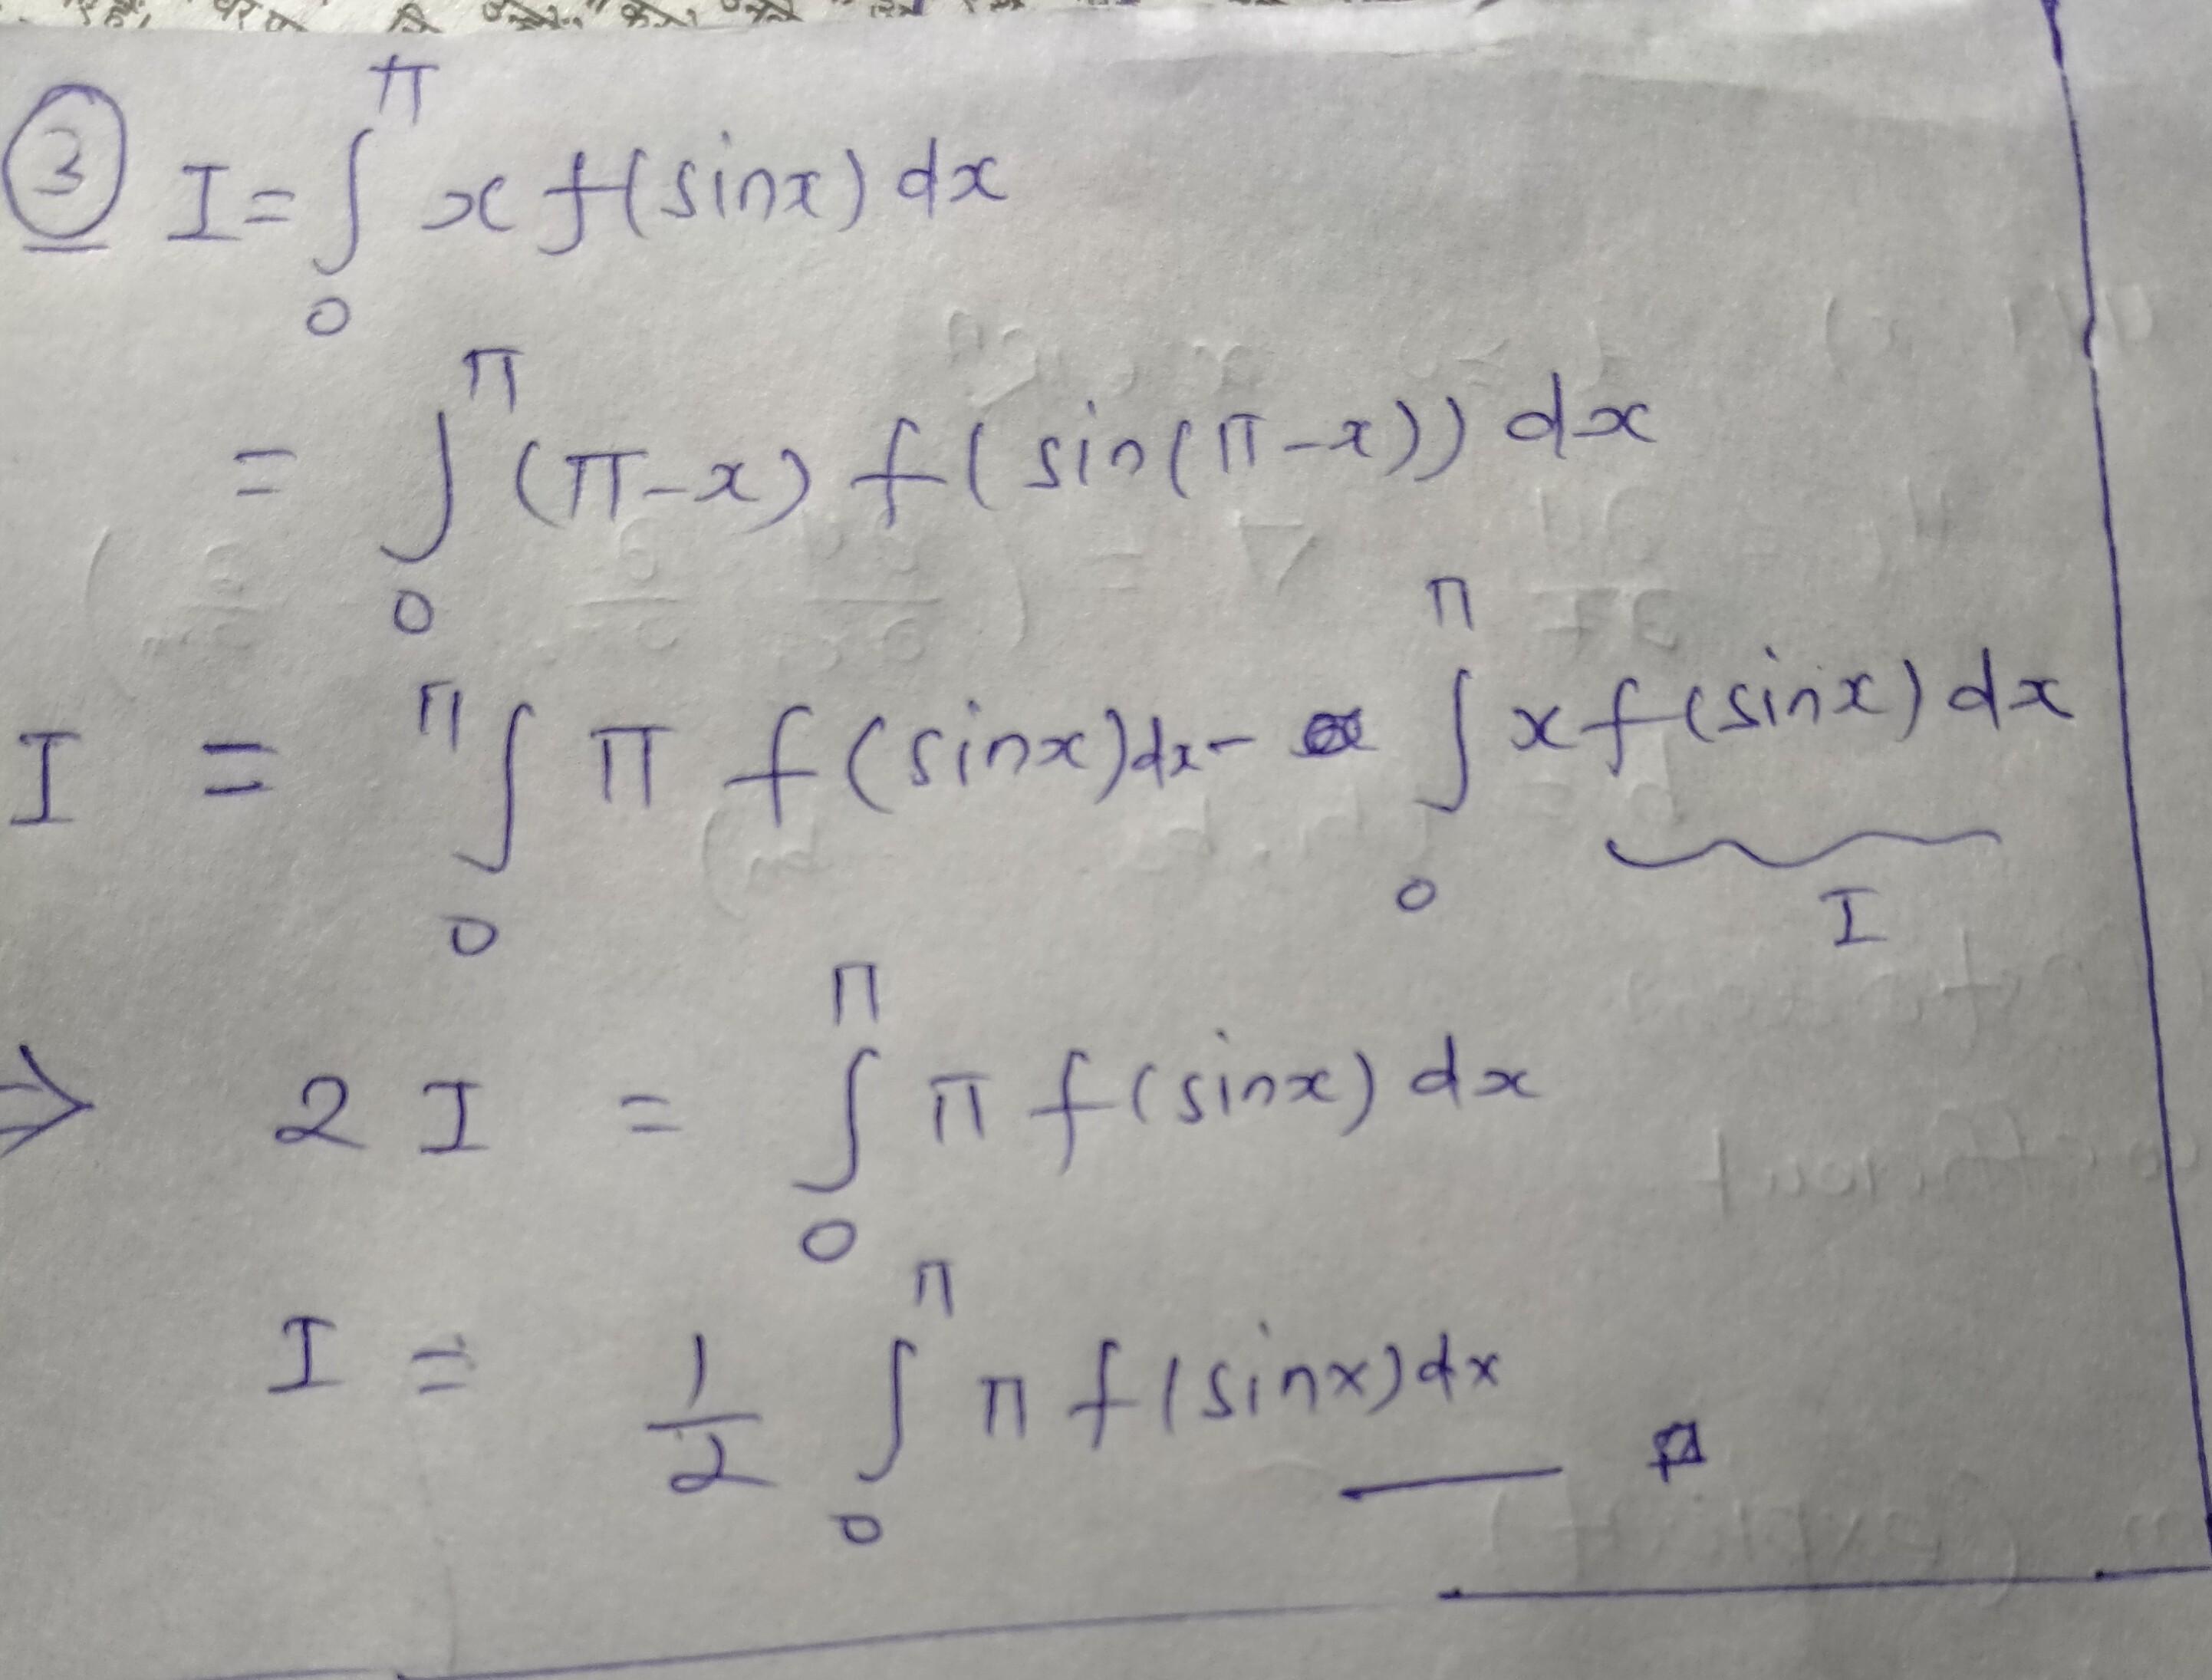 ③ I = ∫₀^π x f(sinx) dx
= ∫₀^π (π-x) f(sin(π-x)) dx
I = ∫₀^π π f(sinx)dx - ∫₀^π x f(sinx) dx
I
⇒ 2 I = ∫₀^π π f(sinx) dx
I = 1/2 ∫₀^π π f(sinx)dx